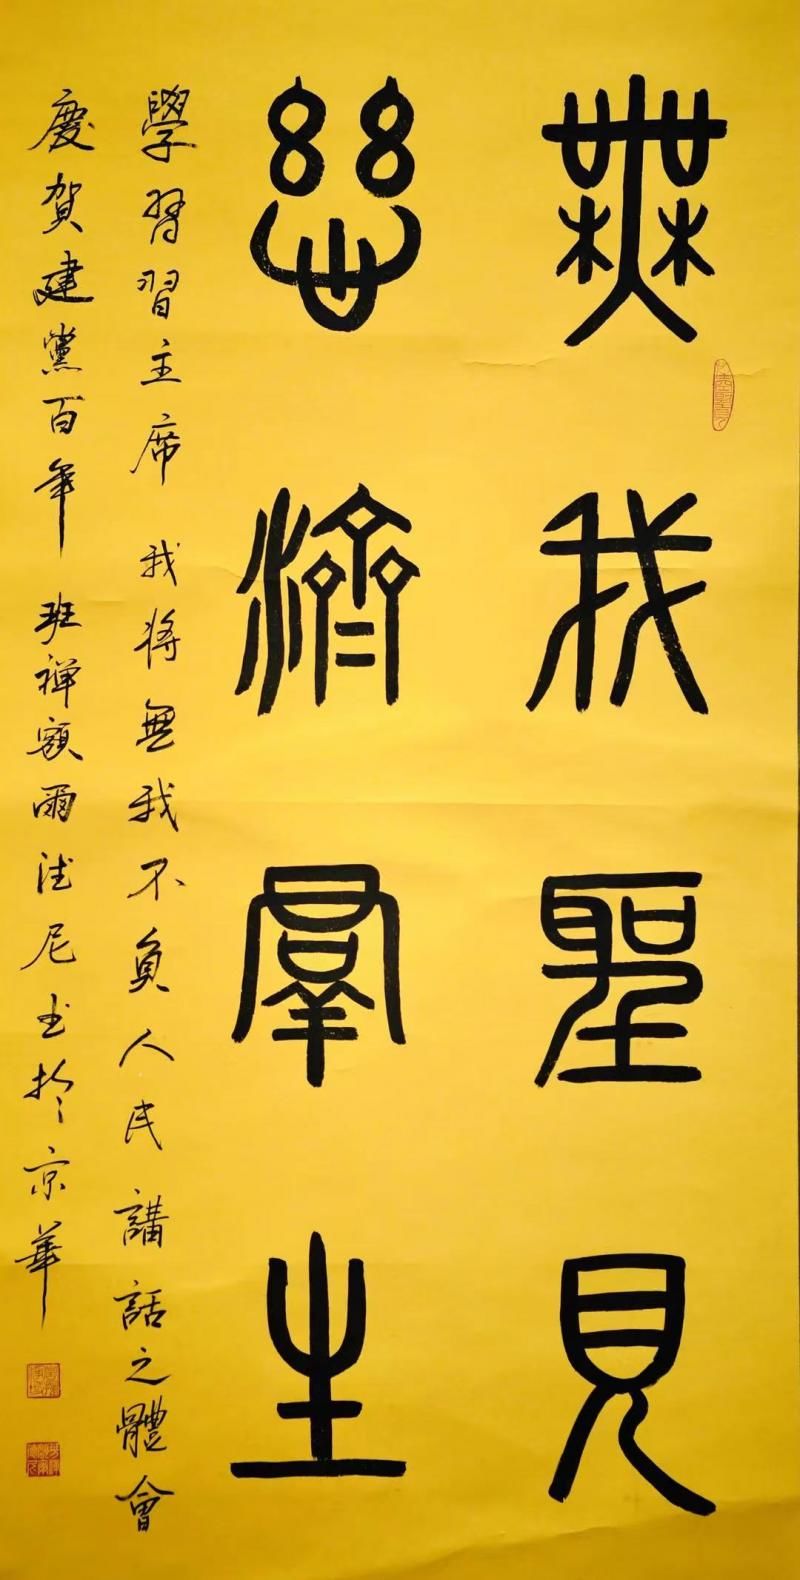 無我聖見
慈濟群生
學習習主席我將無我不負人民講話之體會
慶賀建黨百年班禪額爾德尼書於京華